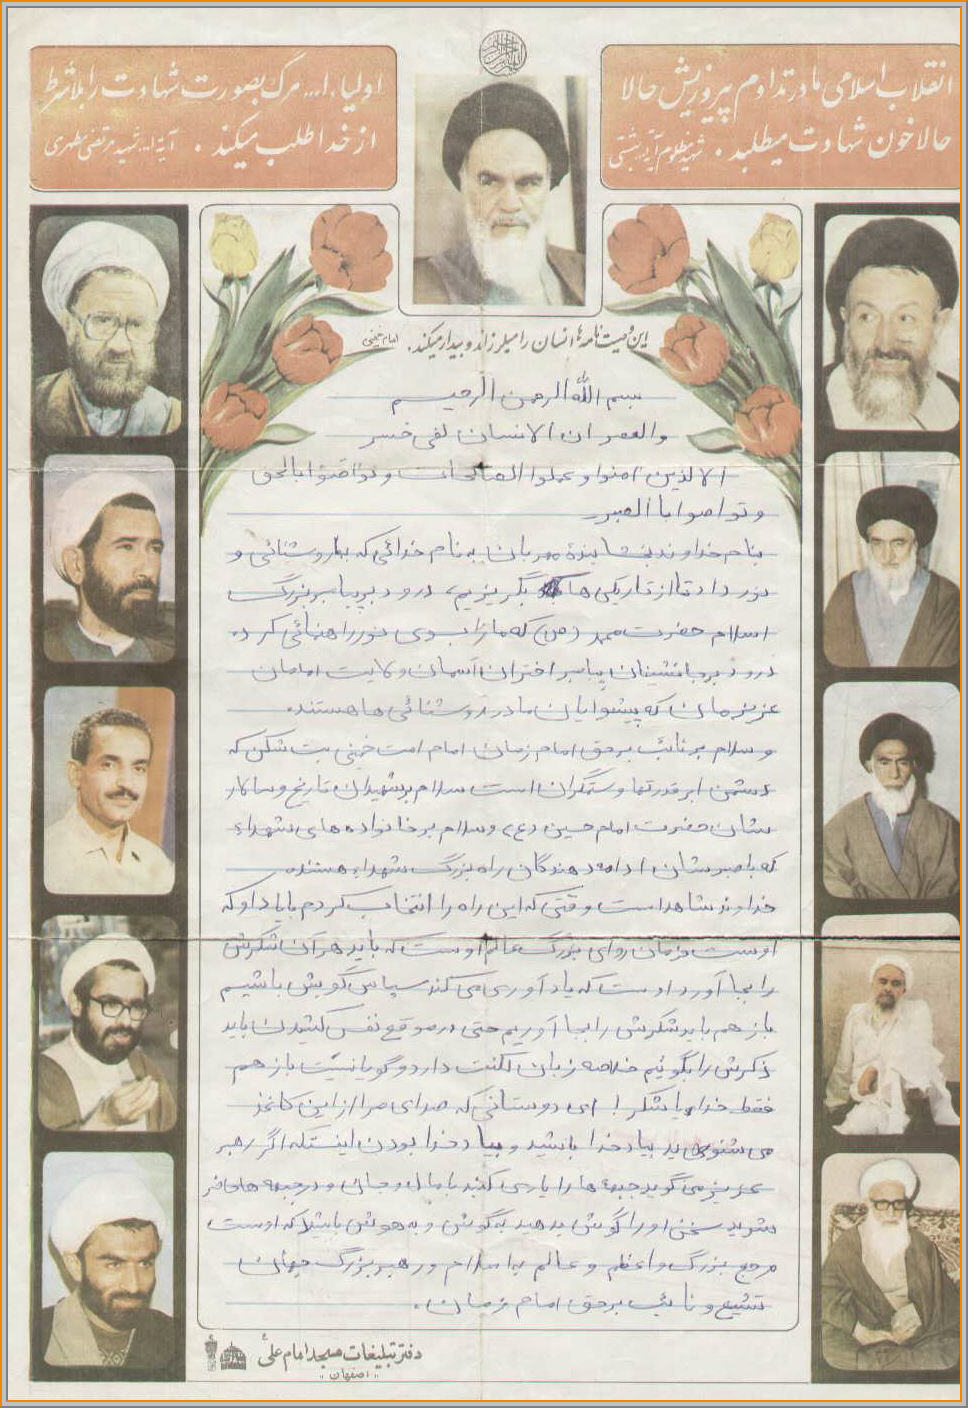 انقلاب اسلامی ما در تداوم پیروزیش حالا
حالا خون شهادت میطلبد . شهید مظلوم آیة... بهشتی
اولیاء ا... مرگ بصورت شهادت را بلاشرط
از خدا طلب میکند . آیة ا... شهید مرتضی مطهری
این وصیت نامه‌ها انسان را میلرزاند و بیدار میکند. امام خمینی
بسم الله الرحمن الرحیم
والعصر ان الانسان لفی خسر
الا الذین امنوا و عملوا الصالحات و تواصوا بالحق
و تواصوا باالصبر
بنام خداوند بخشایندهٔ مهربان به نام خدائی که بما روشنائی و
نور داد تا از تاریکی ها بگریزیم، درود بر پیامبر بزرگ
اسلام حضرت محمد (ص) که ما را بسوی نور راهنمائی کرد.
درود بر جانشینان پیامبر اختران آسمان ولایت امامان
عزیزمان که پیشوایان ما در روشنائی ها هستند.
و سلام بر نائب بر حق امام زمان امام امت خمینی بت شکن که
دشمن ابرقدرتها و ستمگران است سلام بر شهیدان تاریخ و سالار
شان حضرت امام حسین (ع) و سلام بر خانواده های شهداء
که با صبرشان ادامه دهندگان راه بزرگ شهداء هستند.
خداوند شاهد است وقتی که این راه را انتخاب کردم با یاد او که
اوست فرمان روای بزرگ عالم اوست که باید هر آن شکرش
را بجا آورد اوست که یادآوری می کند سپاس گویش باشیم
باز هم باید شکرش را بجا آوریم حتی در موقع نفس کشیدن باید
ذکرش را بگوئیم خلاصه زبان لکنت دارد و گویا نیست باز هم
فقط خدایا شکر! ای دوستانی که صدای مرا از این کاغذ
می شنوید بیاد خدا باشید و بیاد خدا بودن اینستکه اگر رهبر
عزیز می گوید جبهه ها را یاری کنید با مال و جان و در جبهه حاضر
شوید سخن او را گوش بدهید به گوش و به هوش باشید که اوست
مرجع بزرگ و اعظم و عالم به اسلام و رهبر بزرگ جهان
تشیع و نائب بر حق امام زمان.
دفتر تبلیغات مسجد امام علی ع
" اصفهان "